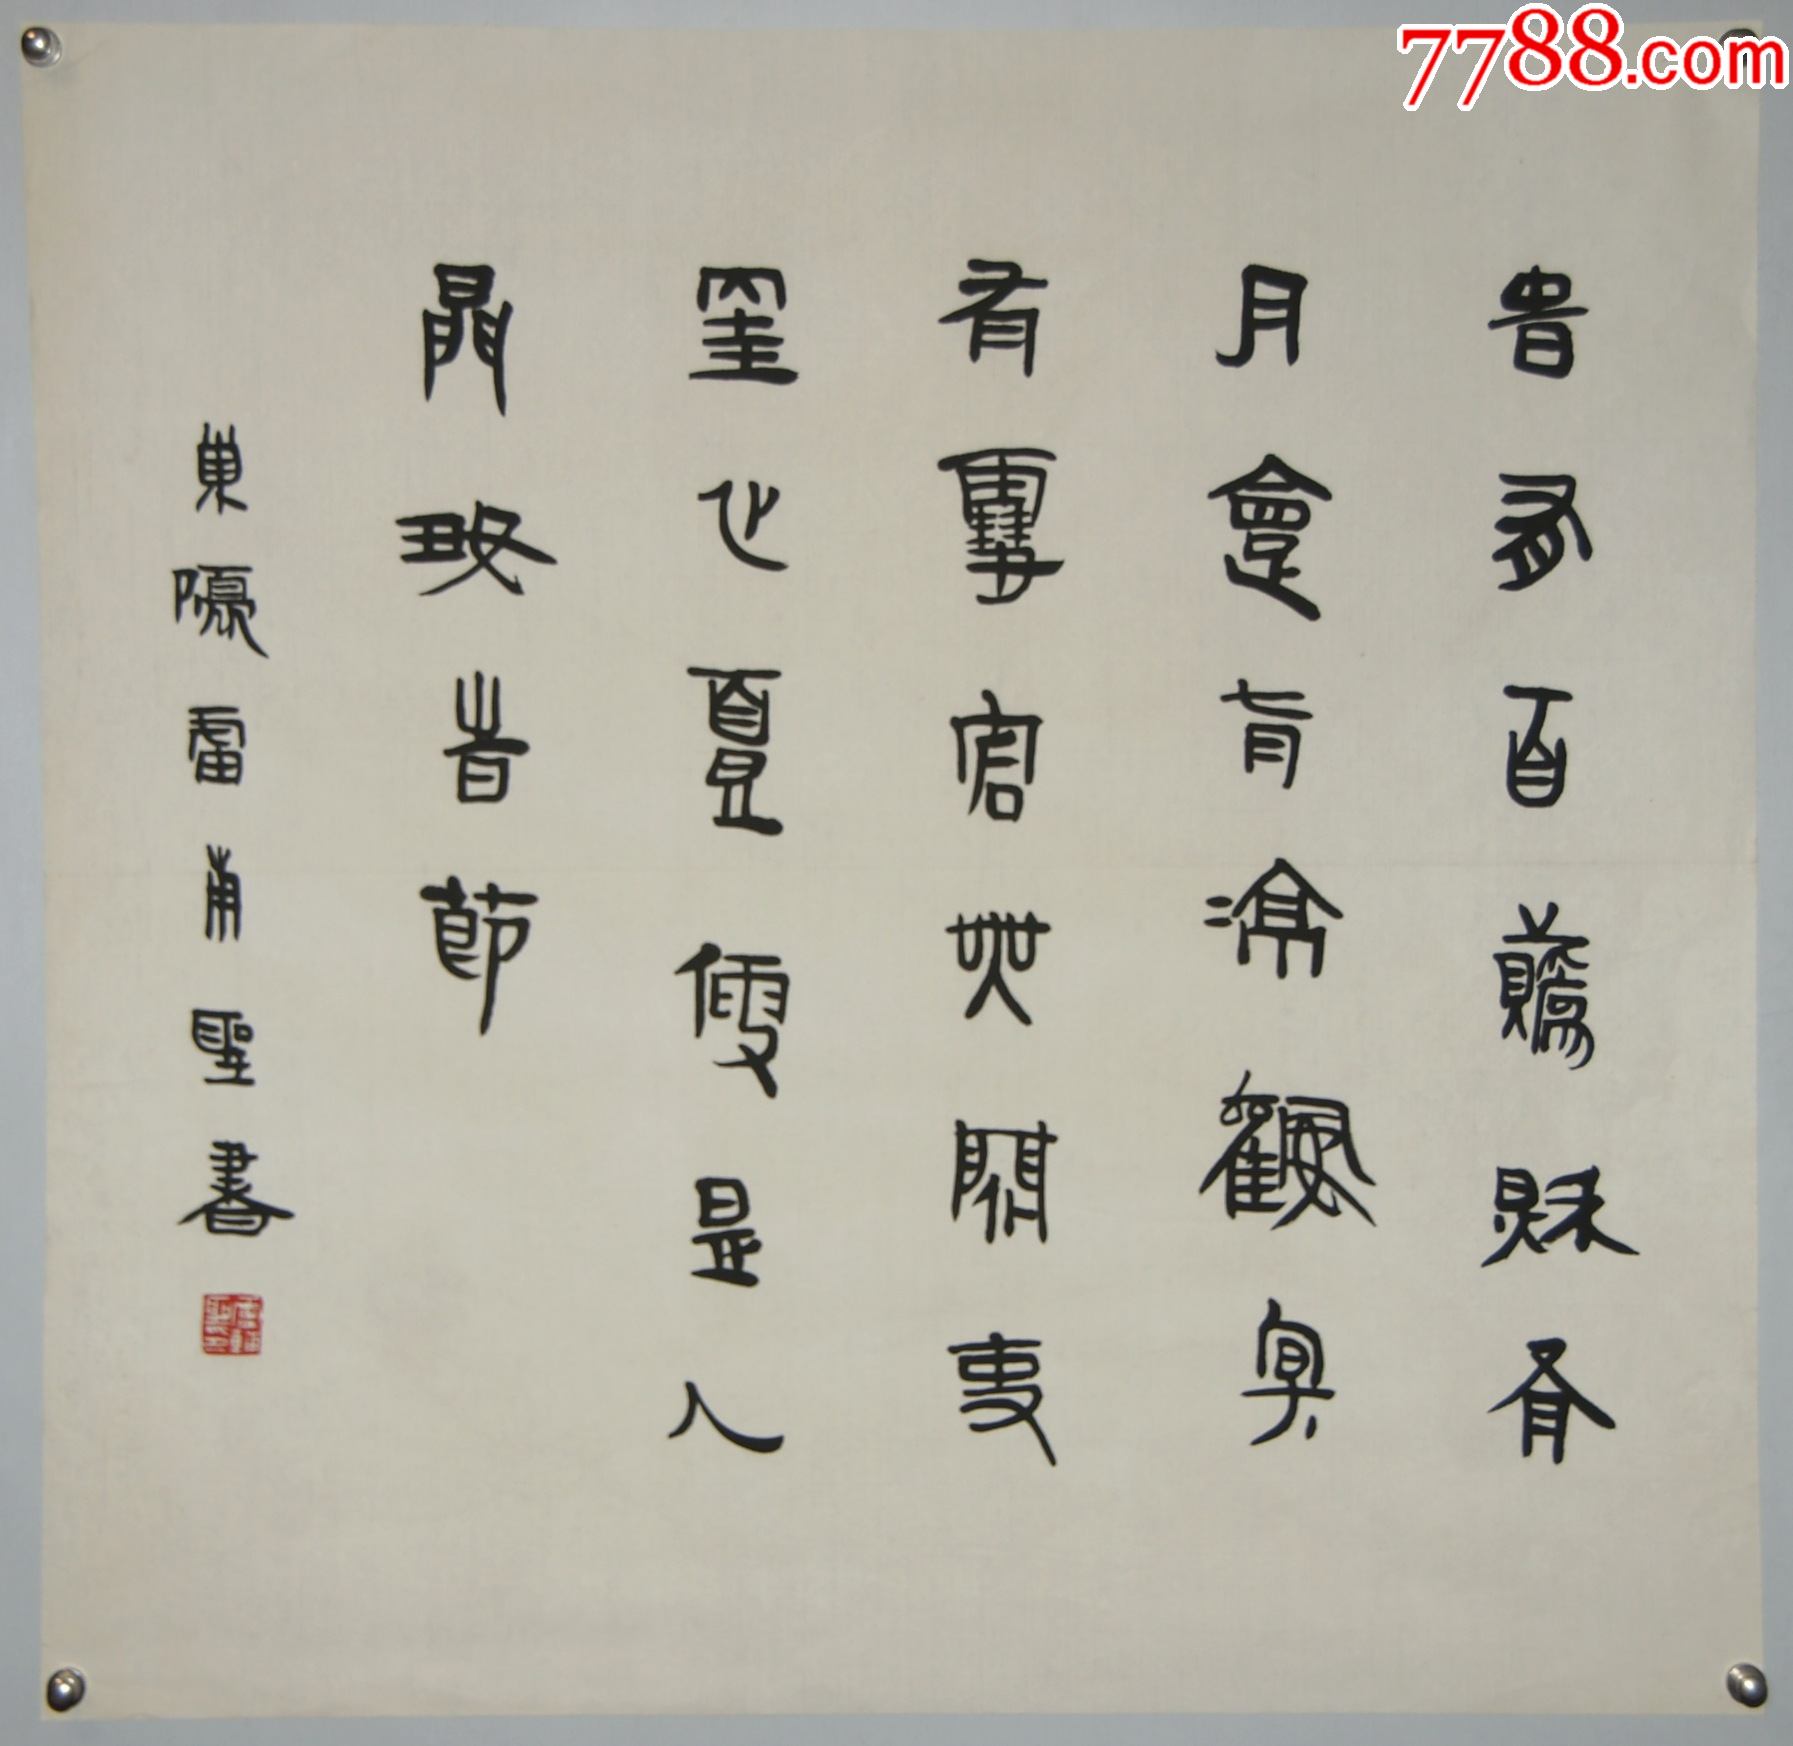 7788.com
春有百花秋有
月夏有凉风冬
有雪若無閑事
挂心頭便是人
間好時節
東隅雷甫聖書